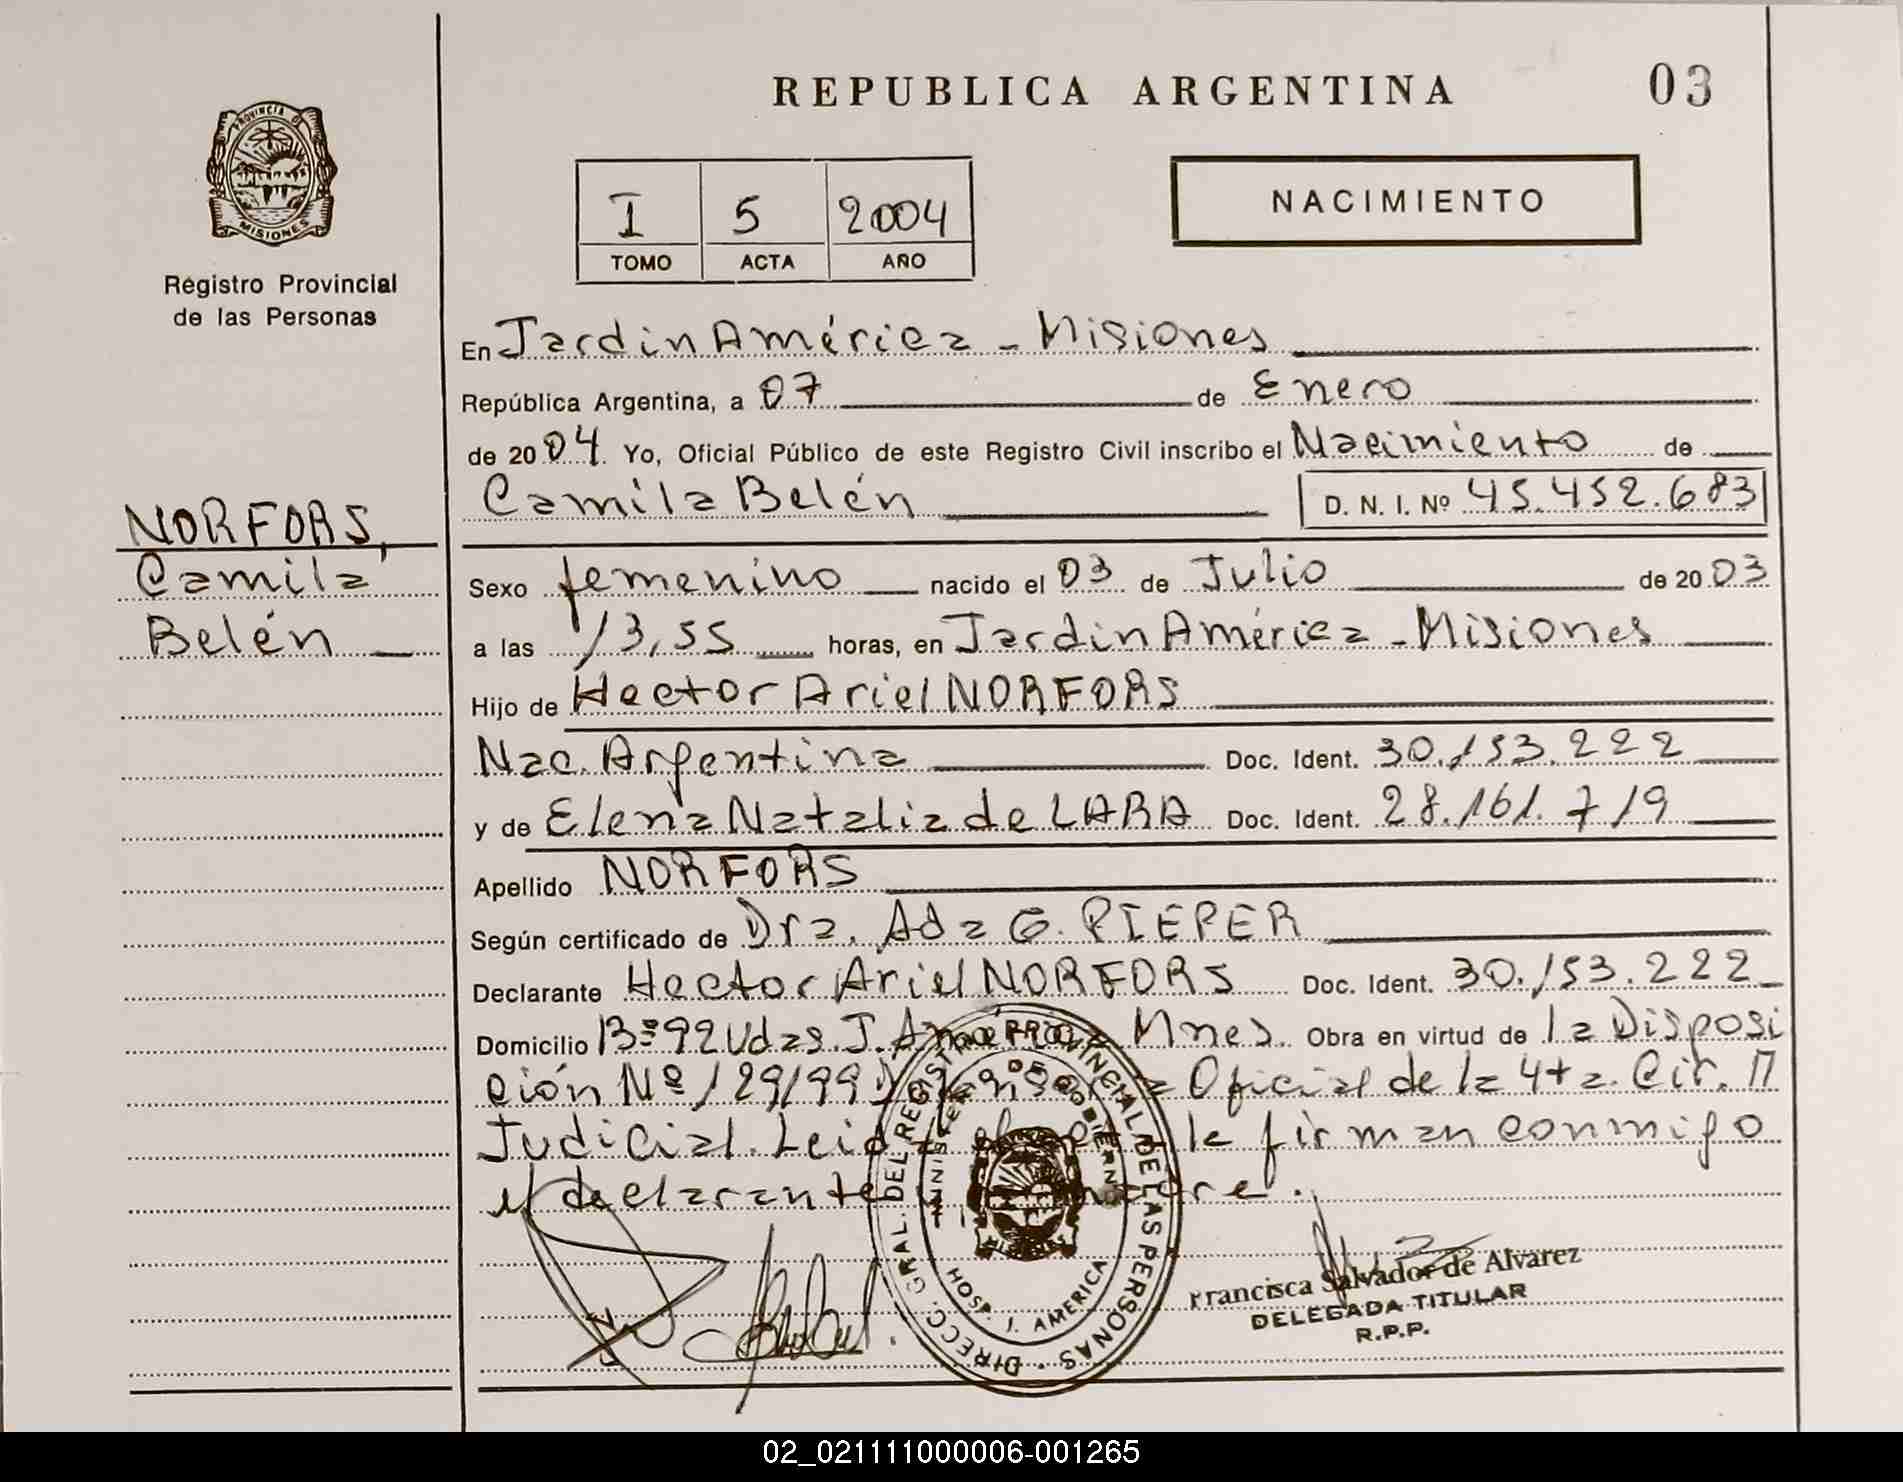 REPUBLICA ARGENTINA
03
PROVINCIA DE
MISIONES
Registro Provincial
de las Personas
I 5 2004
TOMO ACTA AÑO
NACIMIENTO
En Jardin América - Misiones
República Argentina, a 07 de Enero
de 2004 Yo, Oficial Público de este Registro Civil inscribo el Nacimiento de
Camila Belén D. N. I. Nº 45.452.683
NORFORS,
Camila
Belén
Sexo femenino nacido el 03 de Julio de 2003
a las 13,55 horas, en Jardin América - Misiones
Hijo de Hector Ariel NORFORS
Nac. Argentina Doc. Ident. 30.153.222
y de Elena Natalia de LARA Doc. Ident. 28.161.719
Apellido NORFORS
Según certificado de Dra. Ada G. PIEPER
Declarante Hector Ariel NORFORS Doc. Ident. 30.153.222
Domicilio Bº 92 Vdas. J. América Mnes. Obra en virtud de la Disposi
ción Nº 129/99 Oficial de la 4ta. Cir.
Judicial. Leid le firman conmigo
el declarante
DIRECC. GRAL. DEL REGISTRO PROVINCIAL DE LAS PERSONAS
MINISTERIO DE GOBIERNO
HOSP. J. AMERICA
Francisca Salvador de Alvarez
DELEGADA TITULAR
R.P.P.
02_021111000006-001265